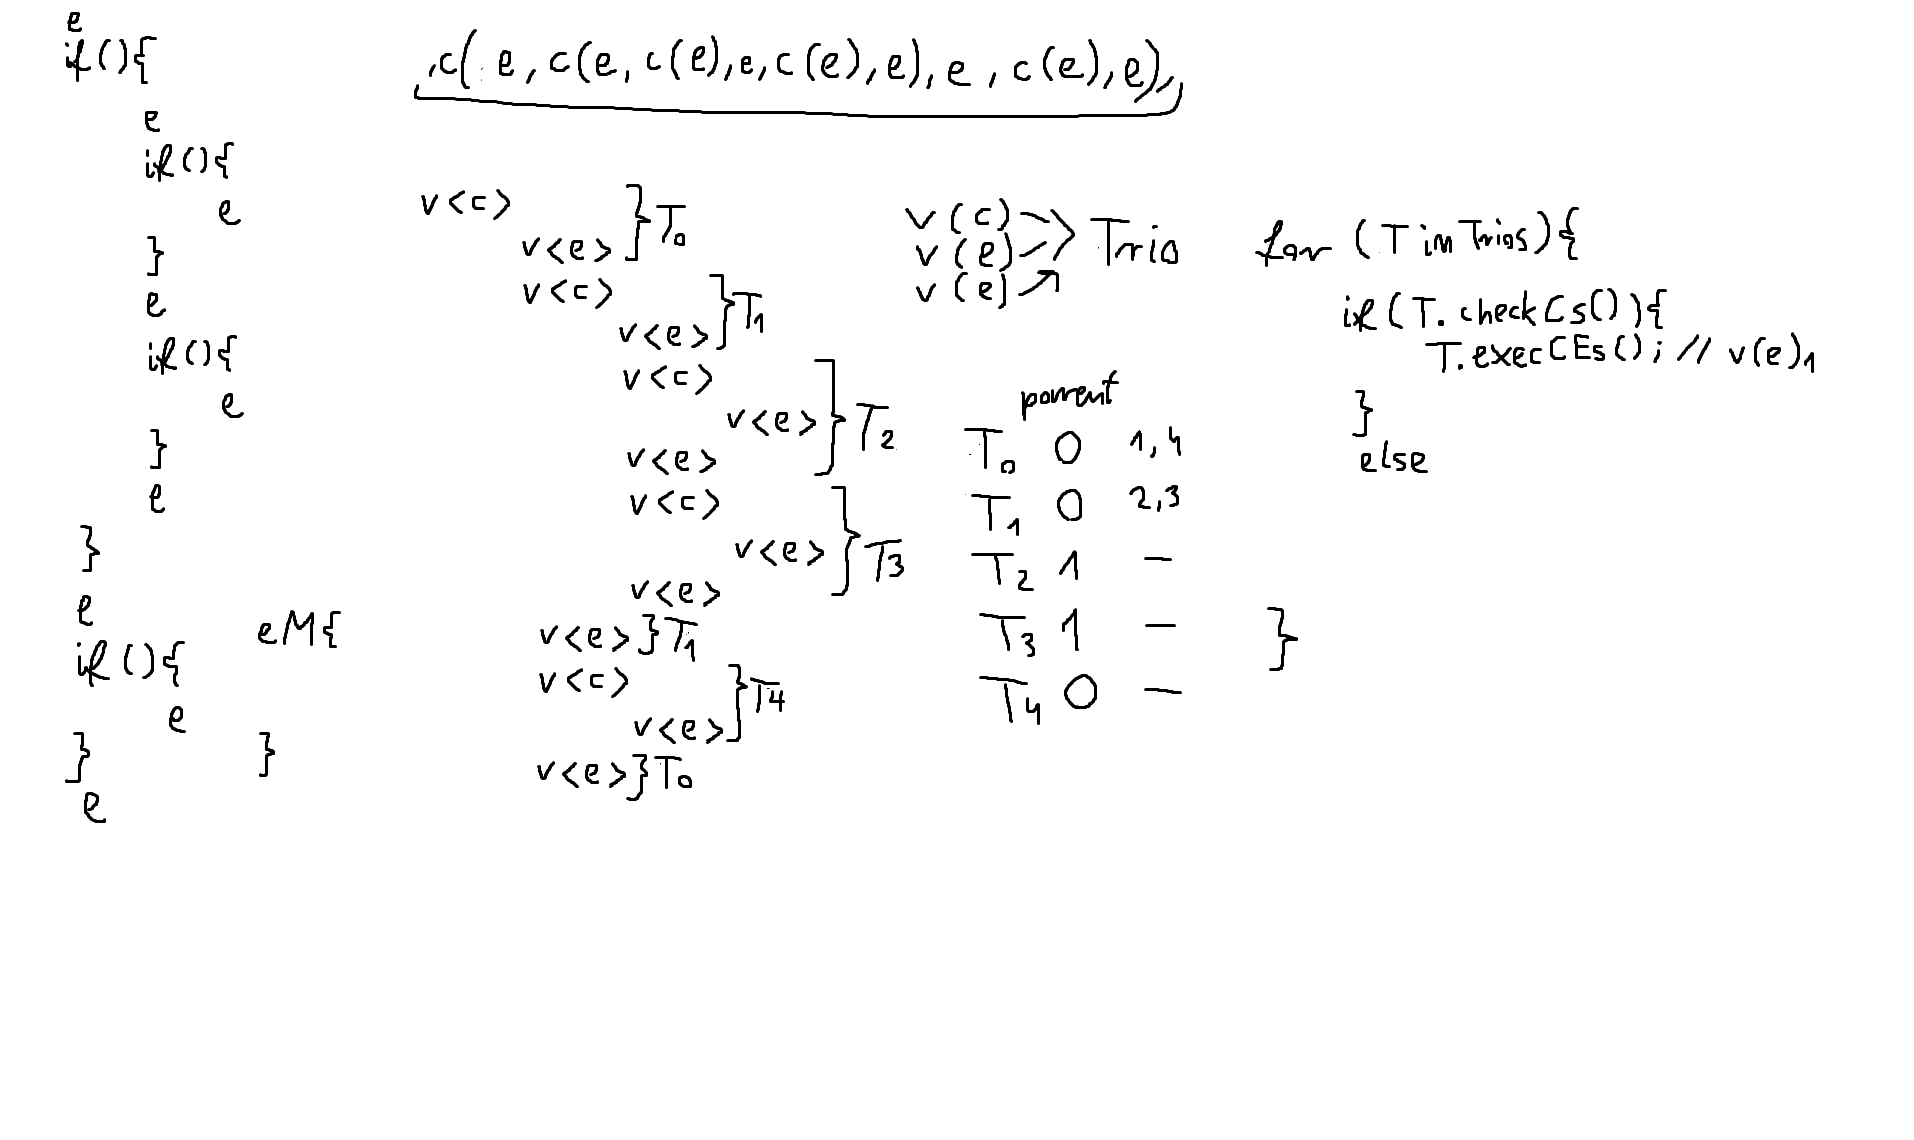 e
if(){
e
if(){
e
}
e
if(){
e
}
e
}
e
if(){
e
}
e
eM{
}
,c( e, c(e, c(e),e,c(e),e),e,c(e),e),
v<c>
v<e> }T0
v<c>
v<e> }T1
v<c>
v<e> }T2
v<e>
v<c>
v<e> }T3
v<e>
v<e>}T1
v<c>
v<e> }T4
v<e>}T0
v(c)
v(e) > Trio
v(e)
parrent
T0 0 1,4
T1 0 2,3
T2 1 —
T3 1 —
T4 0 —
for (T in Trios){
if(T.checkCs()){
T.execCEs(); // v(e)1
}
else
}